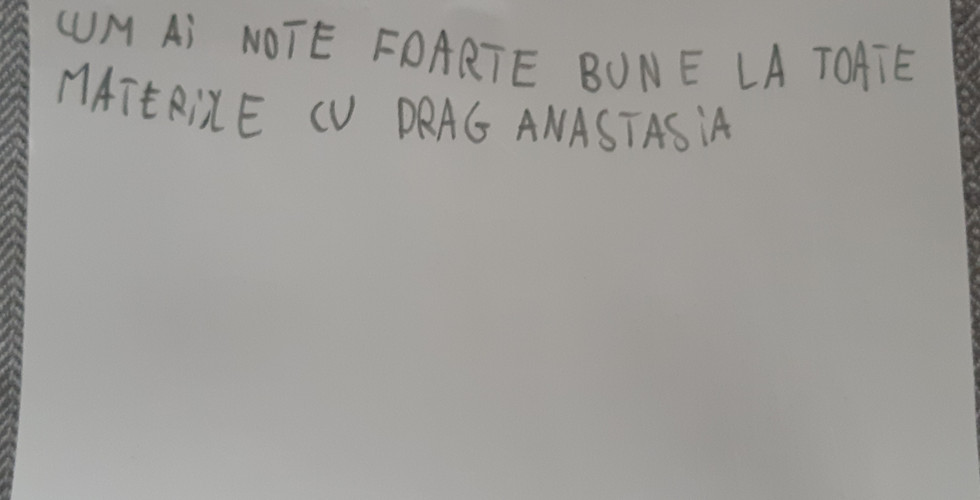 CUM Ai NOTE FOARTE BUNE LA TOATE
MATERiiLE CU DRAG ANASTASiA